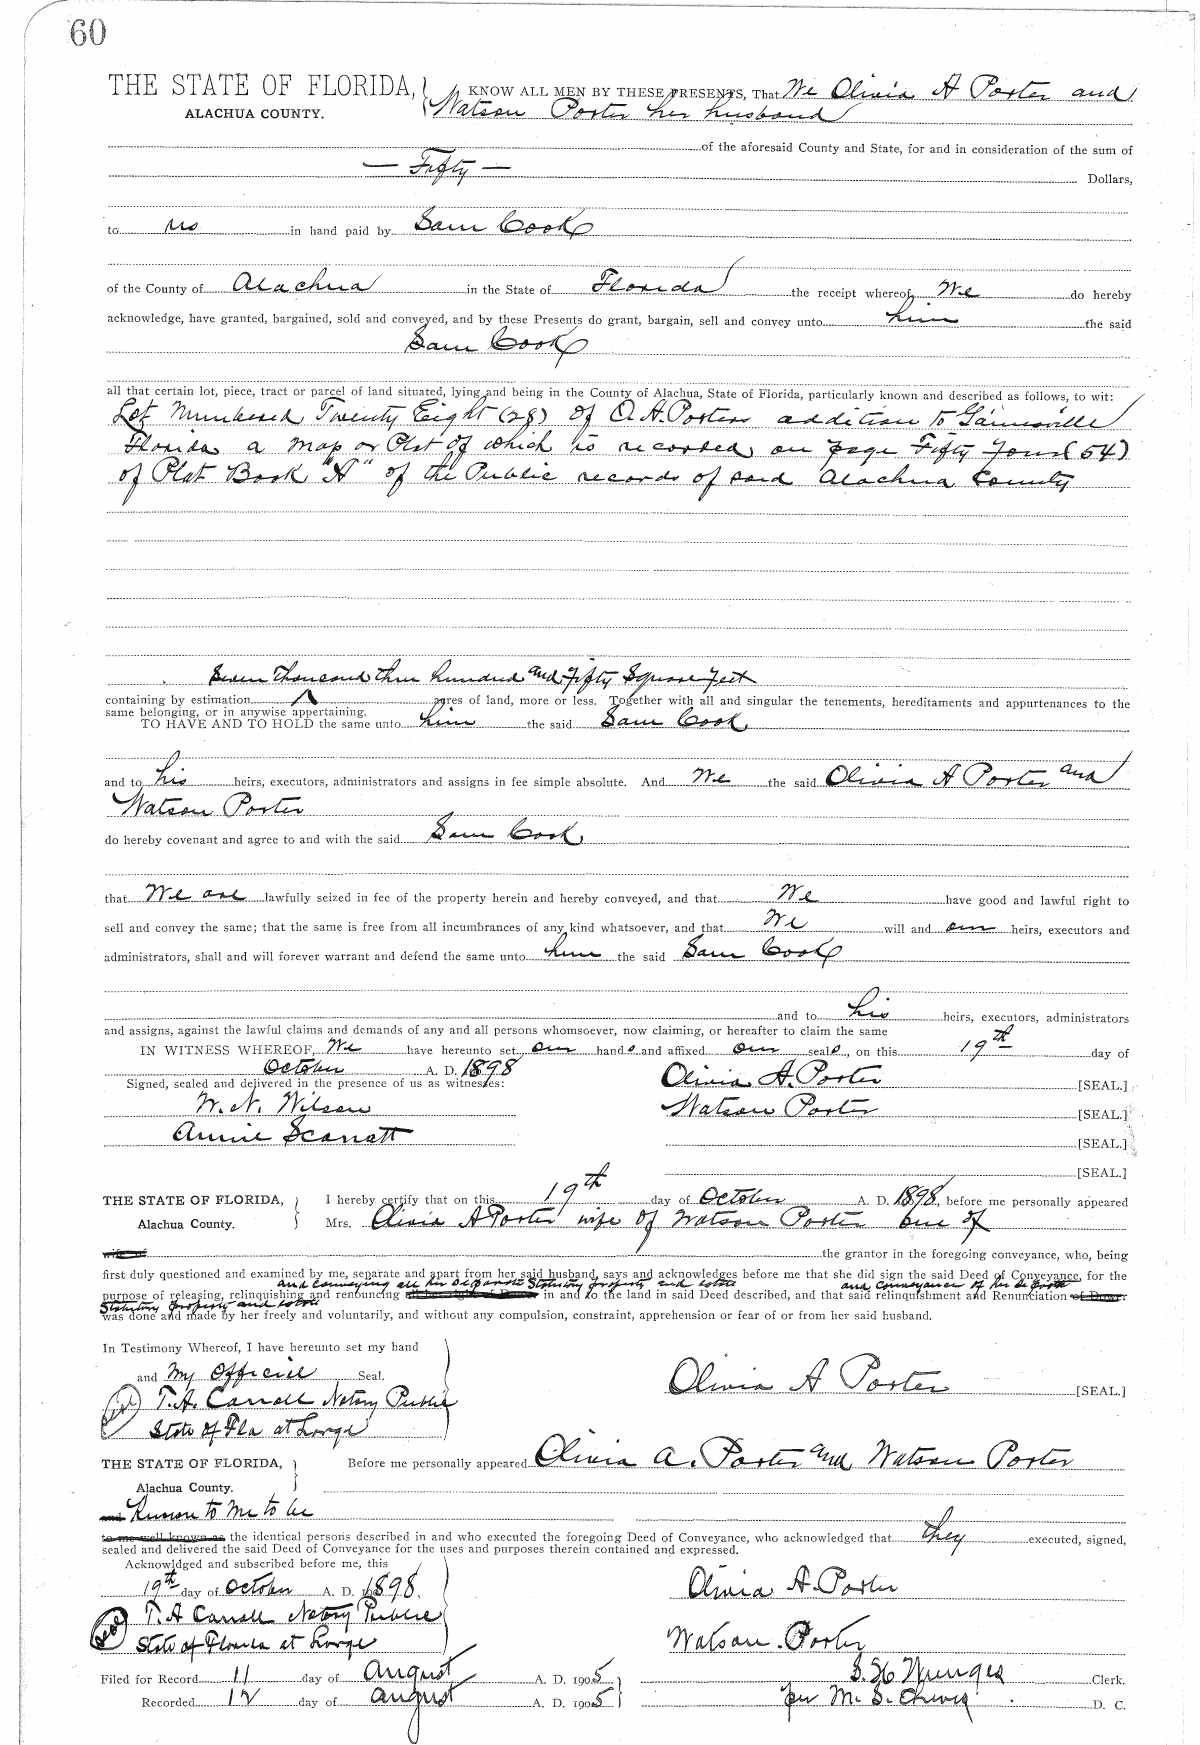 60
THE STATE OF FLORIDA, KNOW ALL MEN BY THESE PRESENTS, That We Olivia A Porter and
ALACHUA COUNTY. Watson Porter her husband
of the aforesaid County and State, for and in consideration of the sum of
— Fifty — Dollars,
to us in hand paid by Sam Cook
of the County of Alachua in the State of Florida the receipt whereof We do hereby
acknowledge, have granted, bargained, sold and conveyed, and by these Presents do grant, bargain, sell and convey unto him the said
Sam Cook
all that certain lot, piece, tract or parcel of land situated, lying and being in the County of Alachua, State of Florida, particularly known and described as follows, to wit:
Lot Numbered Twenty Eight (28) of O.A. Porters addition to Gainesville
Florida a map or Plat of which is recorded on page Fifty four (54)
of Plat Book "A" of the Public records of said Alachua County
Seven Thousand three hundred and Fifty Square Feet
containing by estimation acres of land, more or less. Together with all and singular the tenements, hereditaments and appurtenances to the
same belonging, or in anywise appertaining.
TO HAVE AND TO HOLD the same unto him the said Sam Cook
and to his heirs, executors, administrators and assigns in fee simple absolute. And We the said Olivia A Porter and
Watson Porter
do hereby covenant and agree to and with the said Sam Cook
that We are lawfully seized in fee of the property herein and hereby conveyed, and that We have good and lawful right to
sell and convey the same; that the same is free from all incumbrances of any kind whatsoever, and that We will and our heirs, executors and
administrators, shall and will forever warrant and defend the same unto him the said Sam Cook
and to his heirs, executors, administrators
and assigns, against the lawful claims and demands of any and all persons whomsoever, now claiming, or hereafter to claim the same
IN WITNESS WHEREOF, We have hereunto set our hands and affixed our seals, on this 19th day of
October A. D. 1898
Signed, sealed and delivered in the presence of us as witnesses: Olivia A. Porter [SEAL.]
W. N. Wilson Watson Porter [SEAL.]
Annie Scarratt [SEAL.]
[SEAL.]
THE STATE OF FLORIDA, I hereby certify that on this 19th day of October A. D. 1898, before me personally appeared
Alachua County. Mrs. Olivia A Porter wife of Watson Porter one of
the grantor in the foregoing conveyance, who, being
first duly questioned and examined by me, separate and apart from her said husband, says and acknowledges before me that she did sign the said Deed of Conveyance, for the
and conveying all her separate Statutory property and estate and conveyance of her separate
purpose of releasing, relinquishing and renouncing all her right of Dower in and to the land in said Deed described, and that said relinquishment and Renunciation of Dower
Statutory property and estate
was done and made by her freely and voluntarily, and without any compulsion, constraint, apprehension or fear of or from her said husband.
In Testimony Whereof, I have hereunto set my hand
and My Official Seal. Olivia A Porter [SEAL.]
Seal T. A. Carroll Notary Public
State of Fla at Large
THE STATE OF FLORIDA, Before me personally appeared Olivia A. Porter and Watson Porter
Alachua County.
Known to Me to be
to me well known as the identical persons described in and who executed the foregoing Deed of Conveyance, who acknowledged that they executed, signed,
sealed and delivered the said Deed of Conveyance for the uses and purposes therein contained and expressed.
Acknowldged and subscribed before me, this
19th day of October A. D. 1898. Olivia A. Porter
Seal T. A Carroll Notary Public
State of Florida at Large Watson. Porter
Filed for Record 11 day of August A. D. 1905 S. H Wienges Clerk.
Recorded 12 day of August A. D. 1905 per M. S. Cheves D. C.